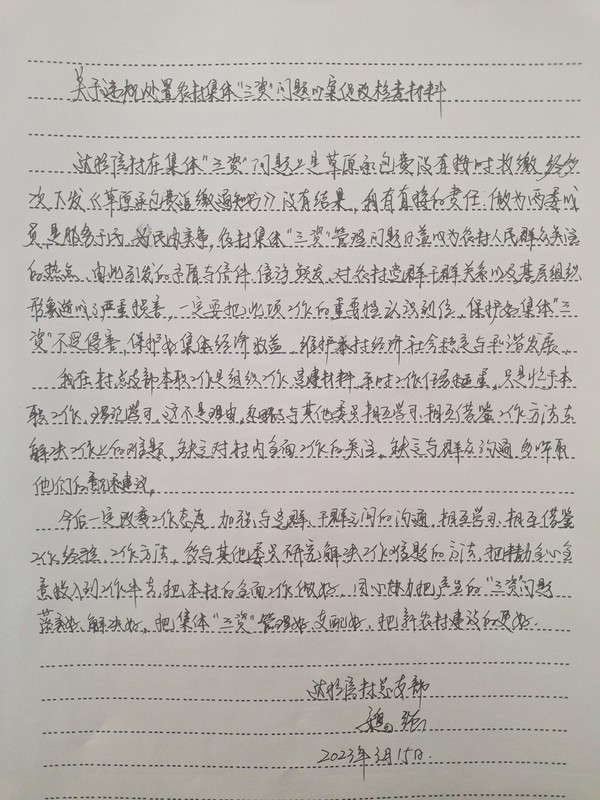 关于违规处置农村集体"三资"问题以案促改检查材料
村在集体"三资"问题上是草原承包费没有按时收缴,经多
次下发《草原承包费追缴通知书》没有结果,我有直接的责任,做为两委成
员是服务于民,为民办实事,农村集体"三资"管理问题日益成为农村人民群众关注
的热点,由此引发的矛盾与信件信访频发,对农村党群干群关系以及基层组织
形象造成了严重损害,一定要把此项工作的重要性认识到位,保护好集体"三
资"不受侵害,保护好集体经济效益,维护农村经济社会稳定与和谐发展。
我在村总支部本职工作是组织工作,党建材料,平时工作任务,只忙于本
职工作,学习,这不是理由,忽略了与其他委员相互学习,相互借鉴工作方法去
解决工作上的难题,缺乏对村内全面工作的关注,缺乏与群众沟通,多听取
他们的意见建议。
今后一定改变工作态度,加强与党群、干群之间的沟通,相互学习,相互借鉴
工作经验、工作方法,多与其他委员研究解决工作难题的方法,把精力全心全
意放入到工作中去,把本村的全面工作做好,同心协力把产生的"三资"问题
落实好,解决好,把集体"三资"管理好,支配好,把新农村建设的更好。
村总支部
2023年3月15日